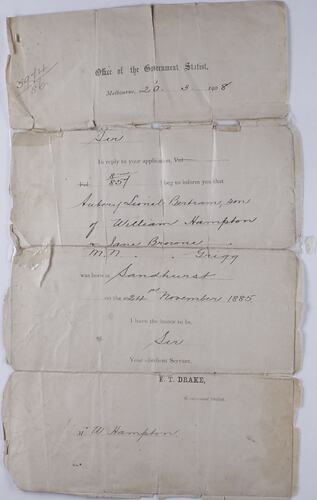 3974
86
Office of the Government Statist,
Melbourne, 20 . 3 . 1908
Sir
In reply to your application,
857 I beg to inform you that
Aubrey Lionel Bertram, son
of William Hampton
& Jane Browne
M.N. . . Grigg
was born at Sandhurst
on the November 1885.
I have the honor to be,
Sir
Your obedient Servant,
E. T. DRAKE,
Government Statist.
Mr W. Hampton